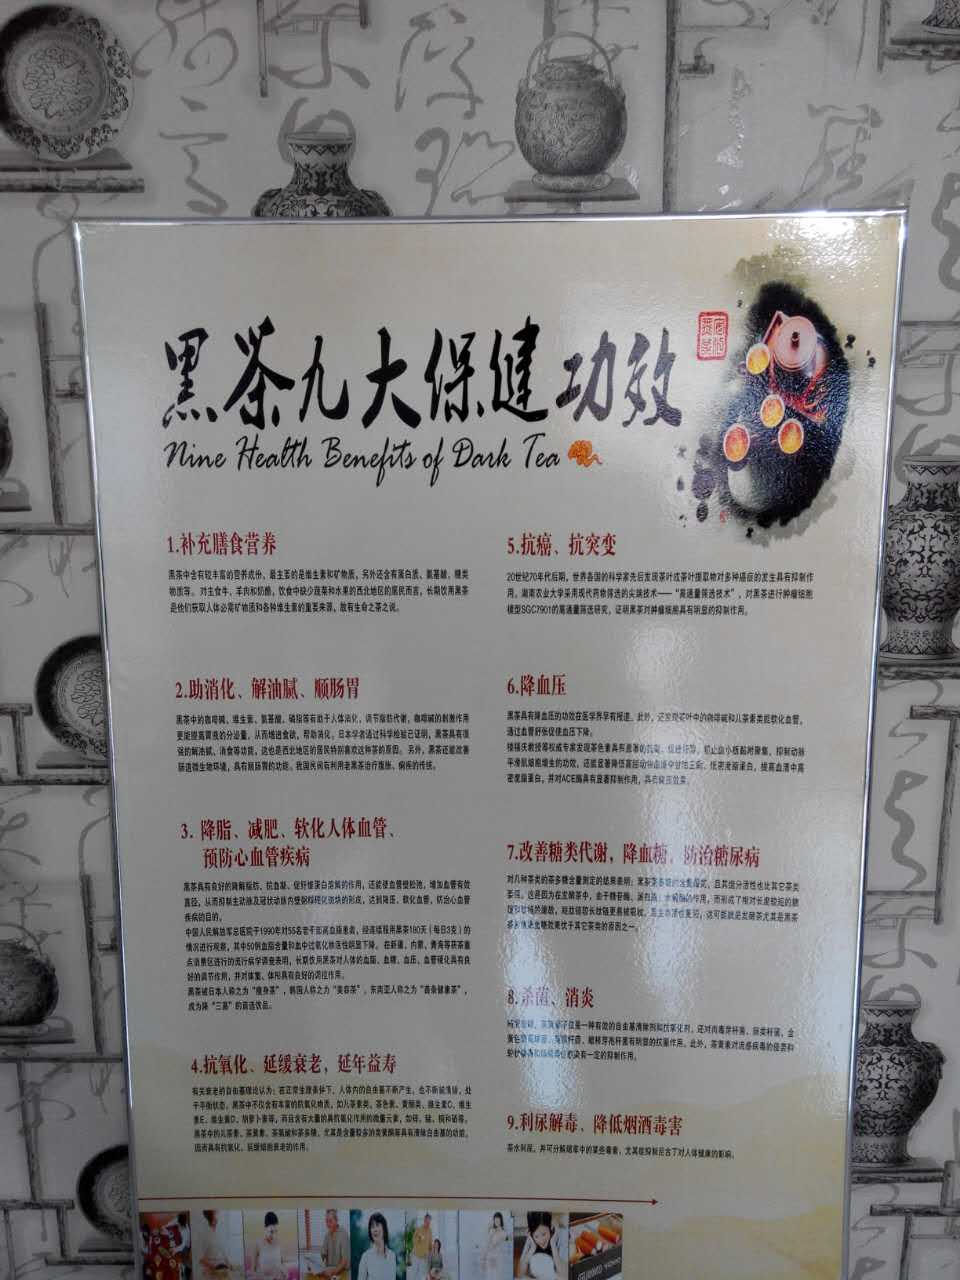 黑茶九大保健功效
Nine Health Benefits of Dark Tea
1.补充膳食营养
黑茶中含有较丰富的营养成份，最主要的是维生素和矿物质，另外还含有蛋白质、氨基酸、糖类
物质等。对主食牛、羊肉和奶酪，饮食中缺少蔬菜和水果的西北地区的居民而言，长期饮用黑茶
是他们获取人体必需矿物质和各种维生素的重要来源，故有生命之茶之说。
2.助消化、解油腻、顺肠胃
黑茶中的咖啡碱、维生素、氨基酸、磷脂等有助于人体消化，调节脂肪代谢，咖啡碱的刺激作用
更能提高胃液的分泌量，从而增进食欲，帮助消化。日本学者通过科学检验已证明，黑茶具有很
强的解油腻、消食等功能，这也是西北地区的居民特别喜欢这种茶的原因。另外，黑茶还能改善
肠道微生物环境，具有顺肠胃的功能。我国民间有利用老黑茶治疗腹胀、痢疾的传统。
3. 降脂、减肥、软化人体血管、
预防心血管疾病
黑茶具有良好的降解脂肪、抗血凝、促纤维蛋白溶解的作用，还能使血管壁松弛，增加血管有效
直径，从而抑制主动脉及冠状动脉内壁粥样硬化斑块的形成，达到降压、软化血管，防治心血管
疾病的目的。
中国人民解放军总医院于1990年对55名老干部高血脂患者，经连续服用黑茶180天（每日3克）的
情况进行观察，其中50例血脂含量和血中过氧化物活性明显下降。在新疆、内蒙、青海等茶茶重
点消费区进行的流行病学调查表明，长期饮用黑茶对人体的血脂、血糖、血压、血管硬化具有良
好的调节作用，并对体重、体形具有良好的调控作用。
黑茶被日本人称之为“瘦身茶”，韩国人称之为“美容茶”，东南亚人称之为“苗条健康茶”，
成为降“三高”的首选饮品。
4.抗氧化、延缓衰老，延年益寿
有关衰老的自由基理论认为：在正常生理条件下，人体内的自由基不断产生，也不断被清除，处
于平衡状态。黑茶中不仅含有丰富的抗氧化物质，如儿茶素类、茶色素、黄酮类、维生素C、维生
素E、维生素D、胡萝卜素等，而且含有大量的具抗氧化作用的微量元素，如锌、锰、铜和硒等。
黑茶中的儿茶素、茶黄素、茶氨酸和茶多糖，尤其是含量较多的类黄酮等具有清除自由基的功能，
因而具有抗氧化、延缓细胞衰老的作用。
5.抗癌、抗突变
20世纪70年代后期，世界各国的科学家先后发现茶叶或茶叶提取物对多种癌症的发生具有抑制作
用。湖南农业大学采用现代药物筛选的尖端技术——“高通量筛选技术”，对黑茶进行肿瘤细胞
模型SGC7901的高通量筛选研究，证明黑茶对肿瘤细胞具有明显的抑制作用。
6.降血压
黑茶具有降血压的功效在医学界早有报道。此外，还发现茶叶中的咖啡碱和儿茶素类能软化血管，
通过血管舒张促使血压下降。
楼福庆教授等权威专家发现茶色素具有显著的抗凝、促进纤溶、防止血小板黏附聚集，抑制动脉
平滑肌细胞增生的功效，还能显著降低高脂动物血清中甘油三酯、低密度脂蛋白，提高血清中高
密度脂蛋白，并对ACE酶具有显著抑制作用，具有降压效果。
7.改善糖类代谢，降血糖，防治糖尿病
对几种茶类的茶多糖含量测定的结果表明：黑茶茶多糖的含量最高，且其组分活性也比其它茶类
要强，这是因为在发酵茶中，由于糖苷酶、蛋白酶、水解酶的作用，而形成了相对长度较短的糖
8.杀菌、消炎
9.利尿解毒、降低烟酒毒害
茶水利尿，并可分解烟草中的某些毒素，尤其能抑制尼古丁对人体健康的影响。